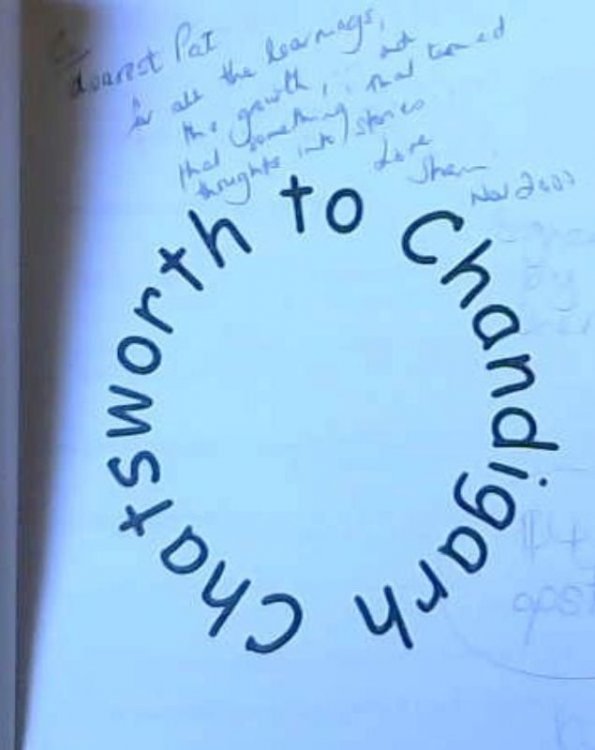 Dearest Pat
for all the learnings,
the growth, and
that something that turned
thoughts into stories
Love
Nov
Chatsworth to Chandigarh